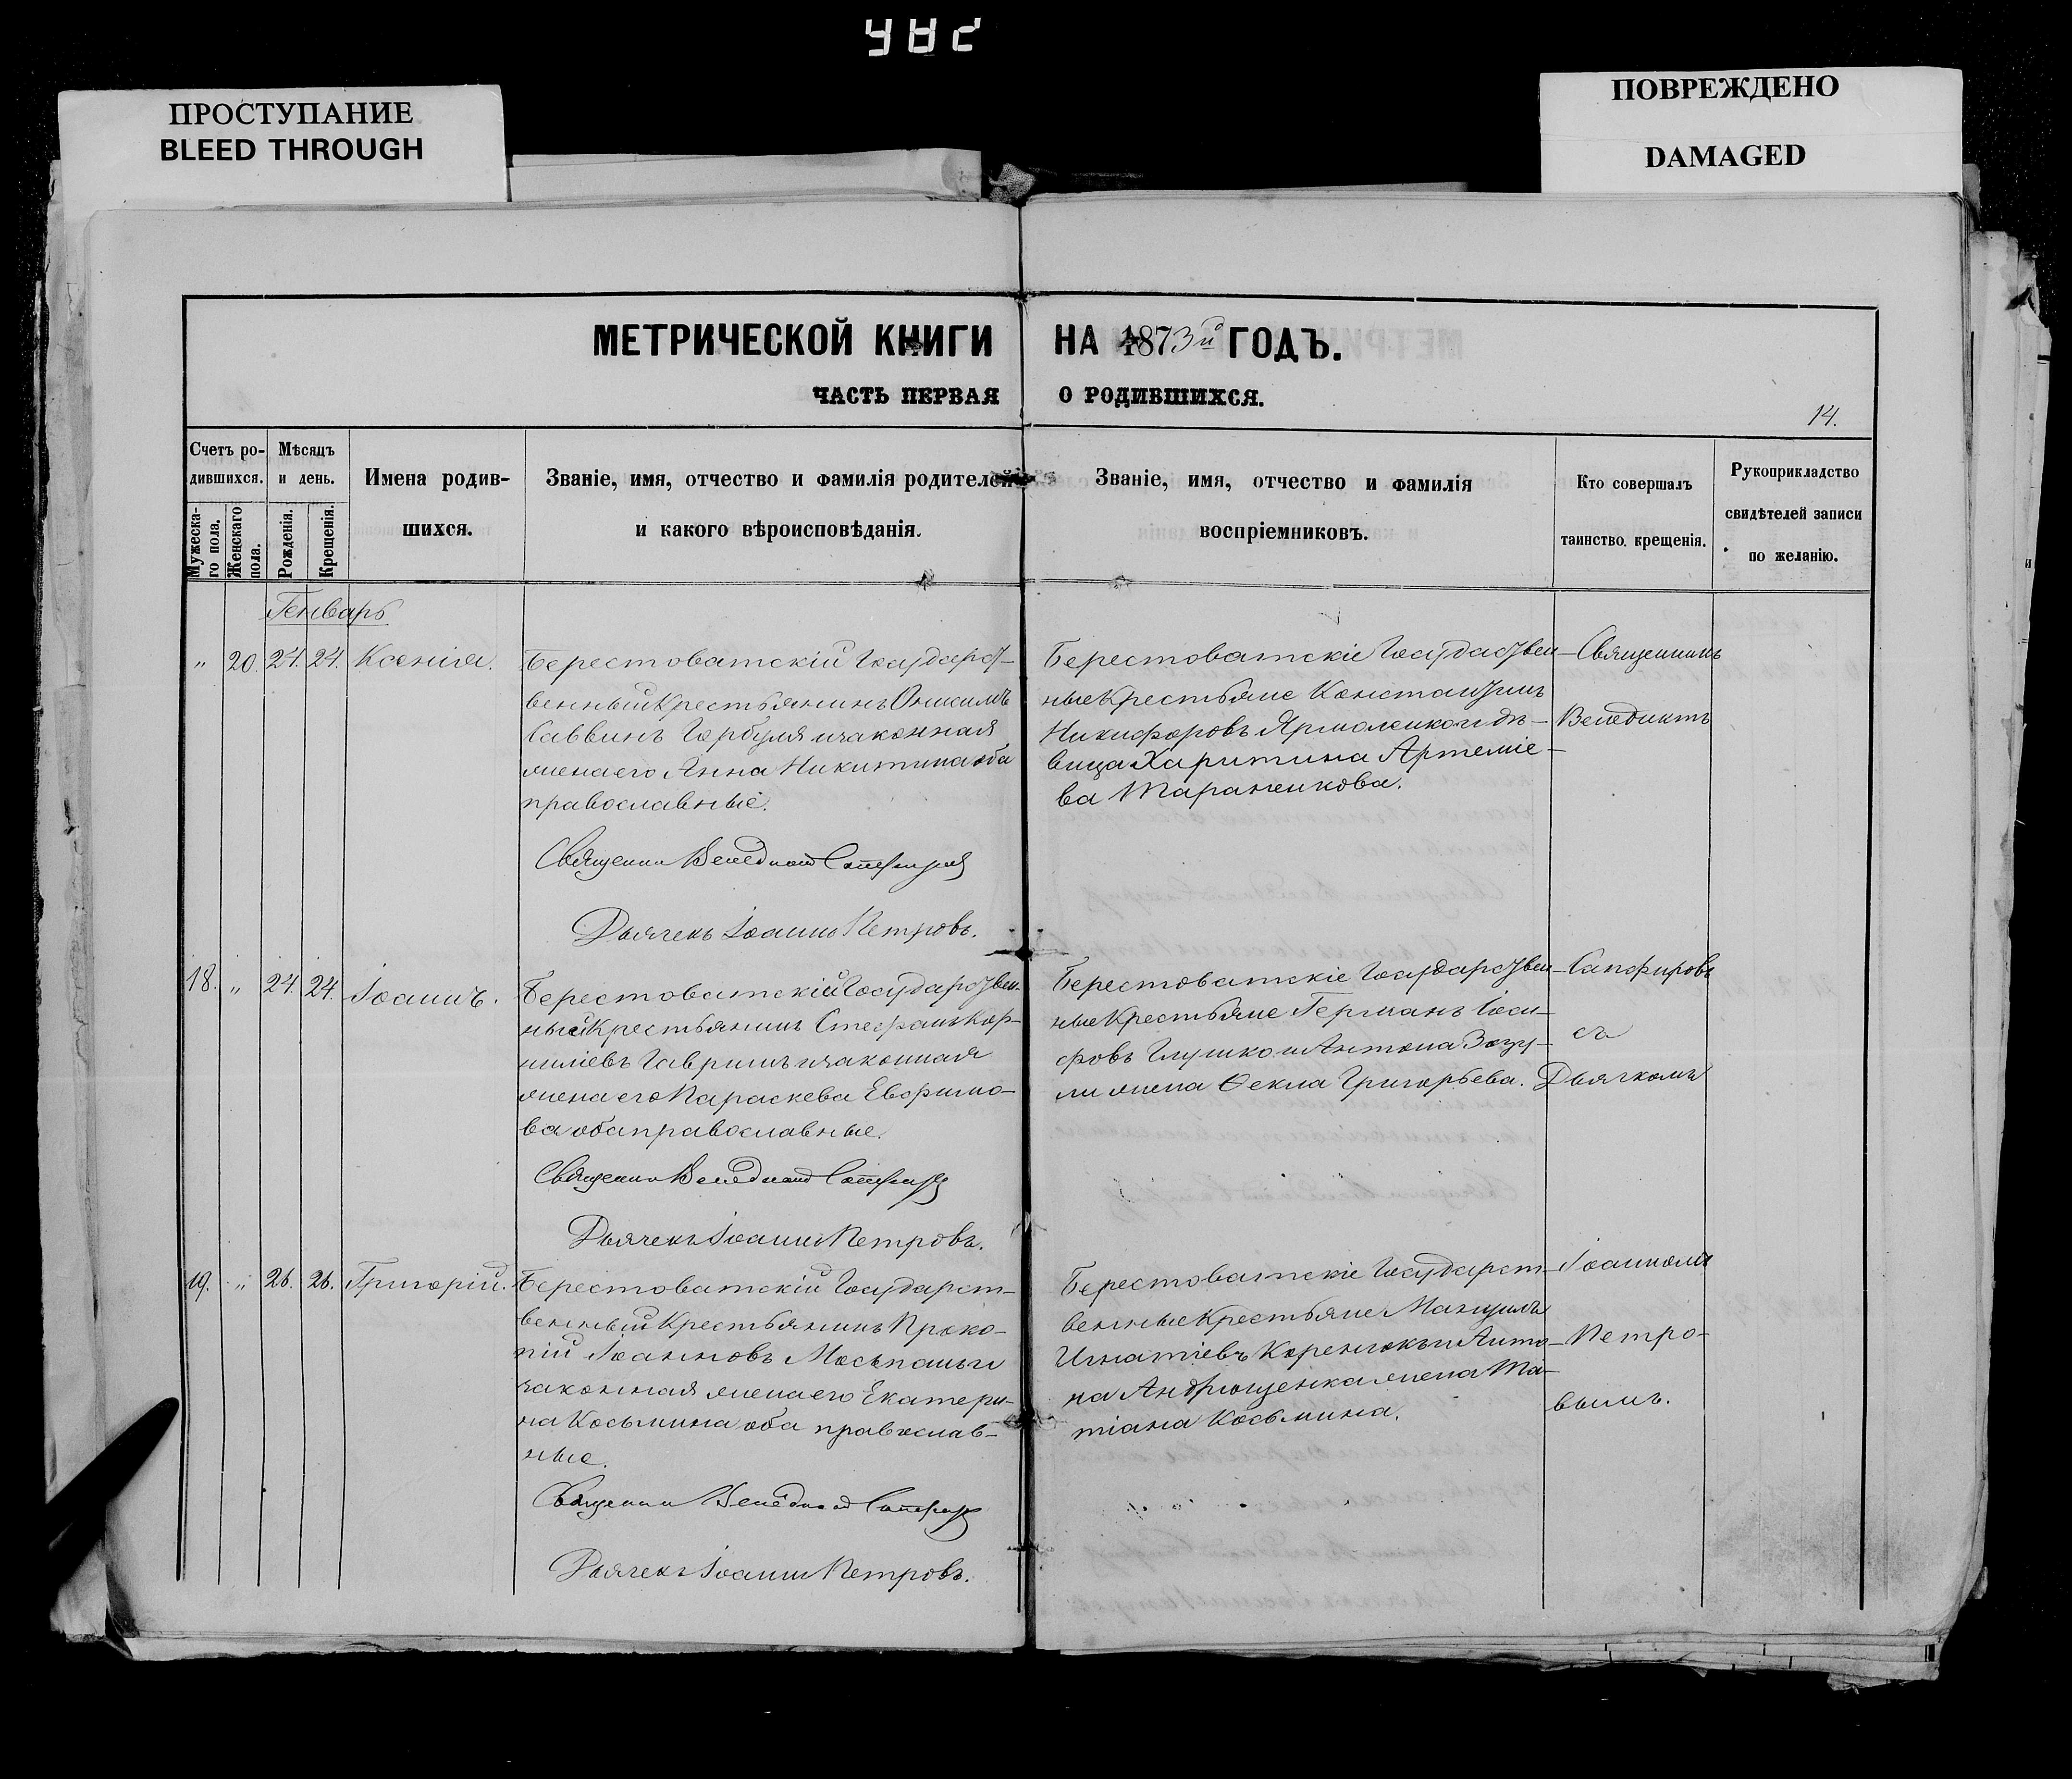 482
ПРОСТУПАНИЕ
BLEED THROUGH
ПОВРЕЖДЕНО
DAMAGED
МЕТРИЧЕСКОЙ КНИГИ НА 1873й ГОДЪ.
ЧАСТЬ ПЕРВАЯ О РОДИВШИХСЯ.
14.
Счетъ ро-
дившихся.
Мужеска-
го пола.
Женскаго
пола.
Мѣсяцъ
и день.
Рожденія.
Крещенія.
Имена родив-
шихся.
Званіе, имя, отчество и фамилія родителей
и какого вѣроисповѣданія.
Званіе, имя, отчество и фамилія
воспріемниковъ.
Кто совершалъ
таинство крещенія.
Рукоприкладство
свидѣтелей записи
по желанію.
Генварь
" 20. 24. 24. Ксенія.
Берестоватскій Государст-
венный Крестьянинъ Онисимъ
Саввинъ Горбуля и законная
жена его Анна Никитина оба
православные.
Священни Венедиктъ Сапфировъ
Дьячекъ Іоаннъ Петровъ.
Берестоватскіе Государствен-
ные Крестьяне Константинъ
Никифоровъ Ярмоленко и дѣ-
вица Харитина Артеміе-
ва Тараненкова.
Священникъ
Венедиктъ
18. " 24. 24. Іоаннъ.
Берестоватскій Государствен-
ный Крестьянинъ Стефанъ Кор-
ниліевъ Гавришъ и законная
жена его Параскева Евфимо-
ва оба православные.
Священни Венедиктъ Сапфировъ
Дьячекъ Іоаннъ Петровъ.
Берестоватскіе Государствен-
ные Крестьяне Германъ Іоси-
фовъ Глушко и Антона Зозу-
ли жена Ѳекла Григорьева.
Сапфировъ
съ
Дьячкомъ
19. " 26. 26. Григорій.
Берестоватскій Государст-
венный Крестьянинъ Проко-
пій Іоанновъ Моспанъ и
законная жена его Екатери-
на Косьмина оба православ-
ные.
Священни Венедиктъ Сапфировъ
Дьячекъ Іоаннъ Петровъ.
Берестоватскіе Государст-
венные Крестьяне Мануилъ
Игнатіевъ Коренюкъ и Анто-
на Андрющенка жена Та-
тіана Косьмина.
Іоанномъ
Петро-
вымъ.